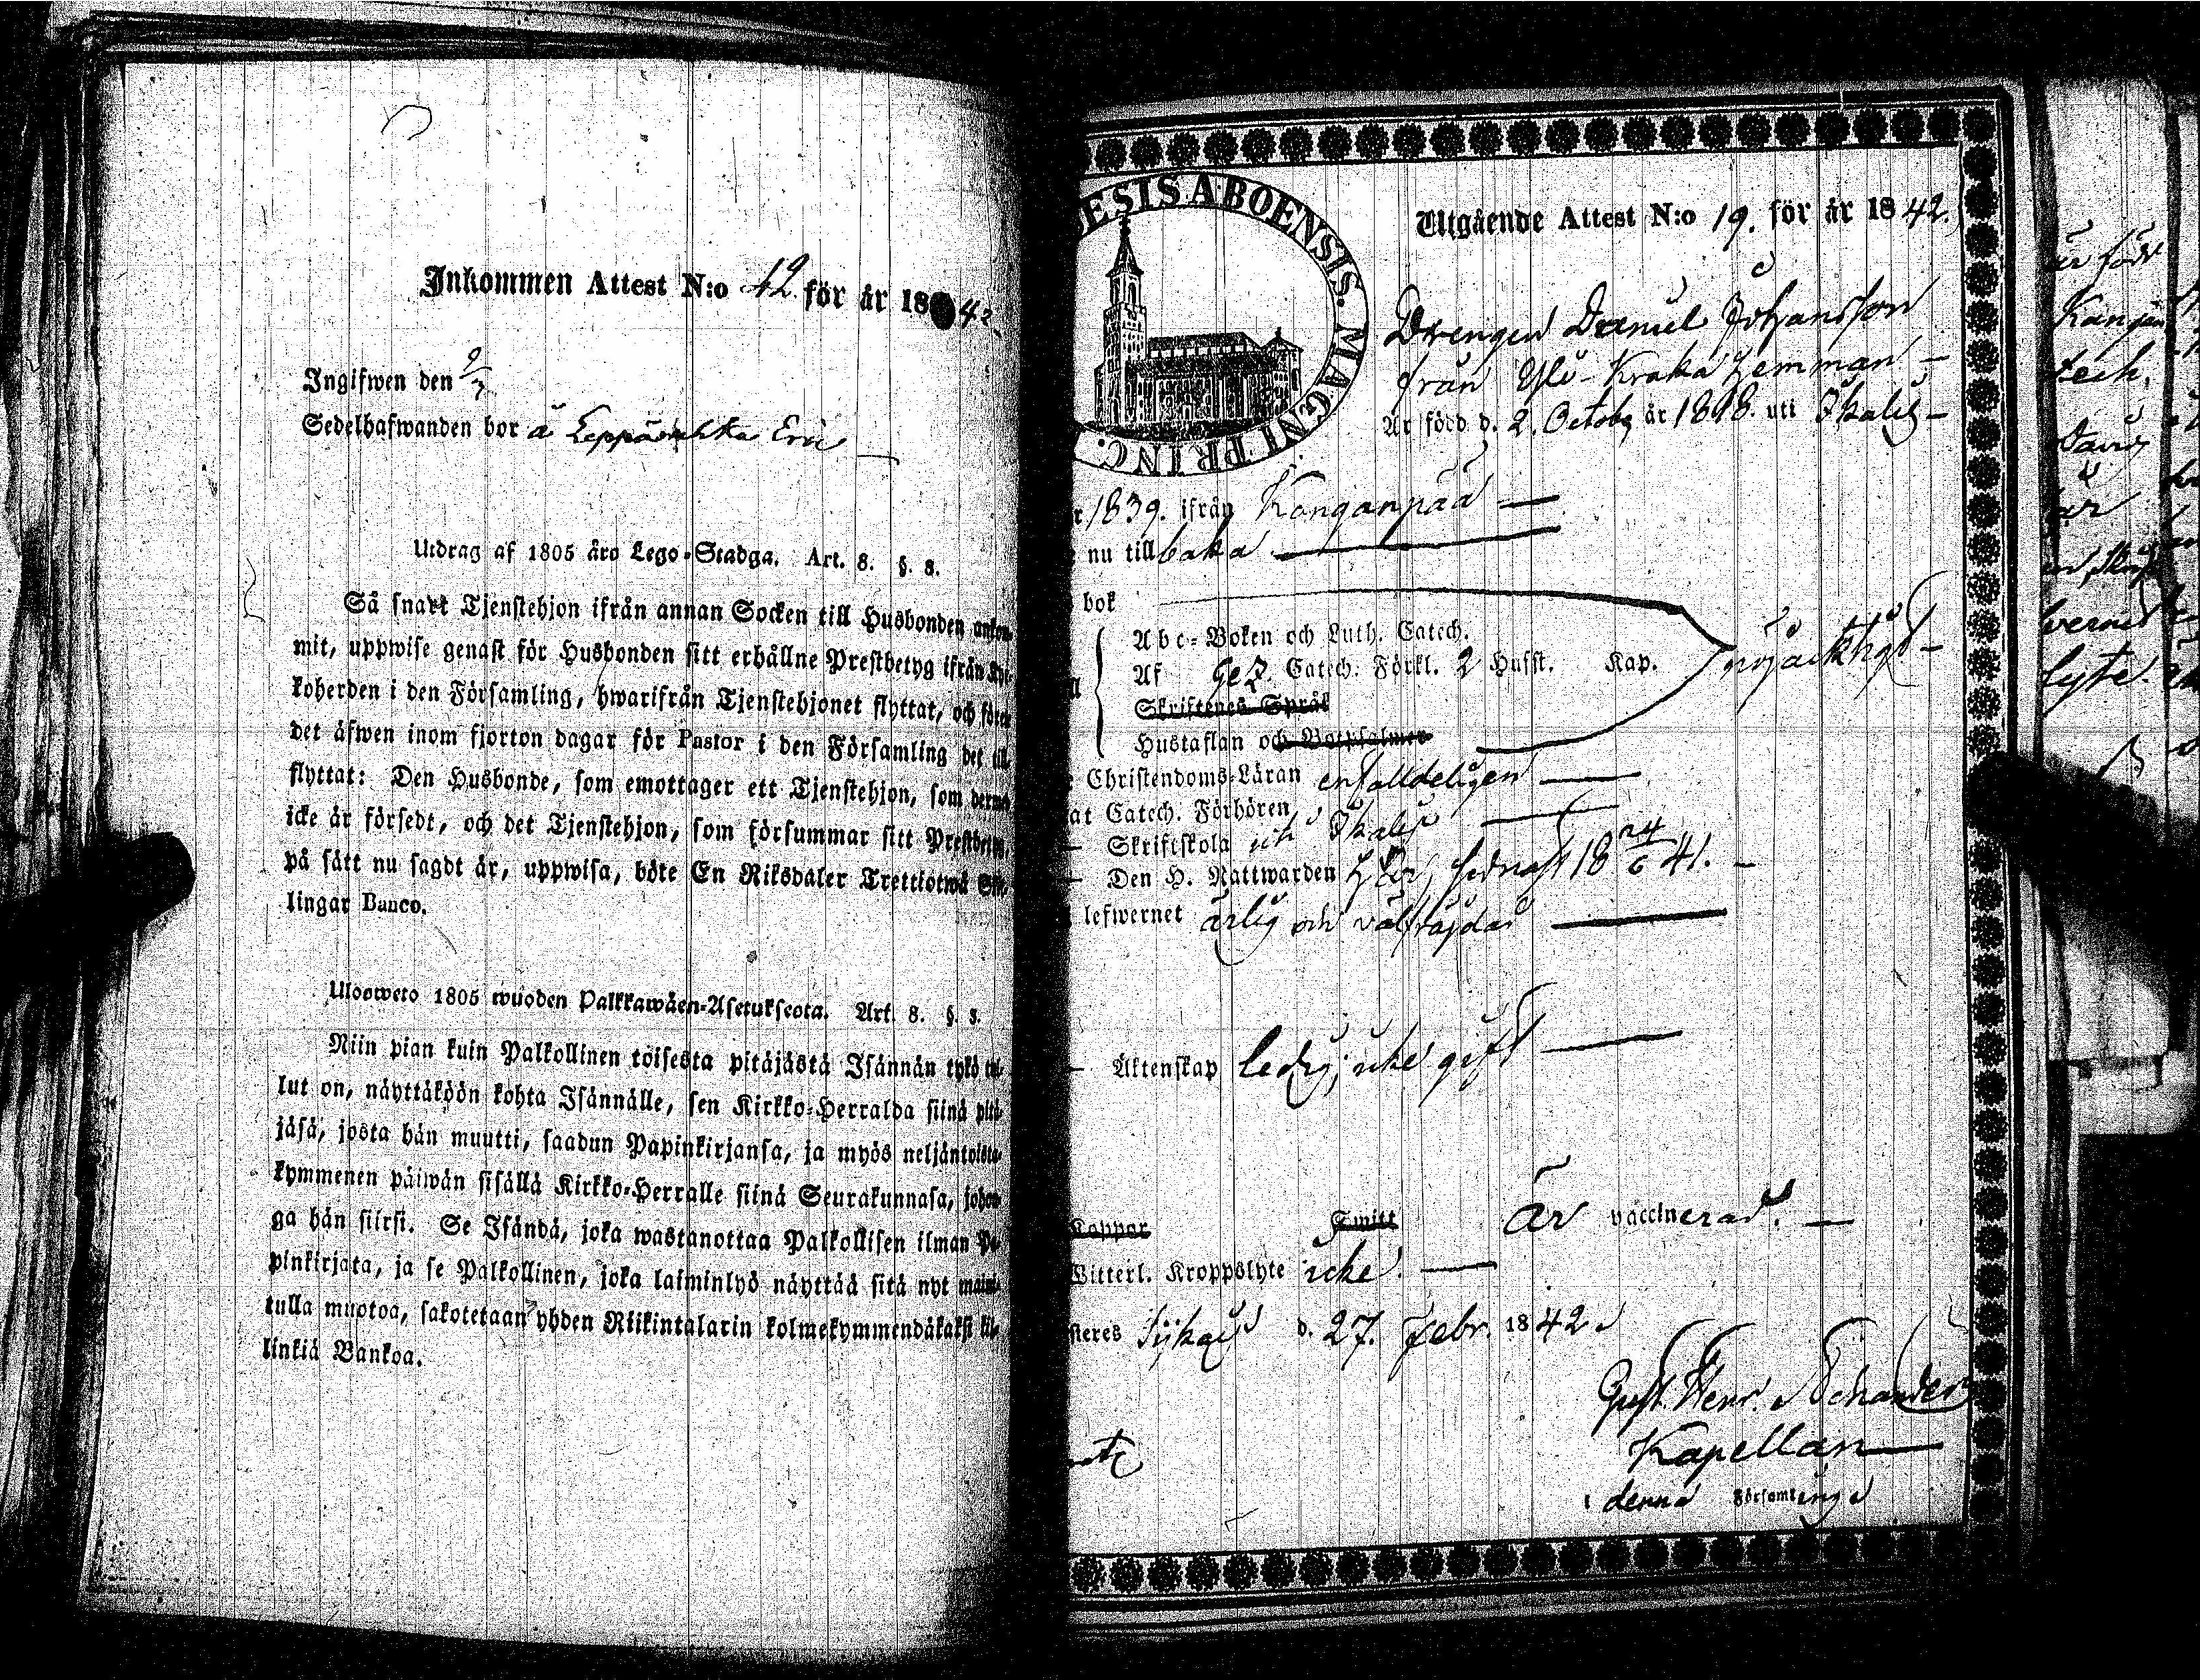 Inkommen Attest N:o 12. för år 1842.
Ingifwen den 9/3
Sedelhafwanden bor å
Utdrag af 1805 åro Lego-Stadga. Art. 8. §. 8.
Så snart Tjenstehjon ifrån annan Socken till Husbonden ankom-
mit, uppwise genast för Husbonden sitt erhållne Prestbetyg ifrån Kyr-
koherden i den Församling, hwarifrån Tjenstehjonet flyttat, och
det äfwen inom fjorton dagar för Pastor i den Församling det till
flyttat: Den Husbonde, som emottager ett Tjenstehjon, som dermed
icke är försedt, och det Tjenstehjon, som försummar sitt Prestbetyg,
på sätt nu sagdt är, uppwisa, böte En Riksdaler Trettiotwå Skil-
lingar Banco.
Ulooweto 1805 wuoden Palkkawäen-Asetukseota. Art. 8. §. 8.
Niin pian kuin Palkollinen toisesta pitäjästä Isännän tykö tul-
lut on, näyttäköön kohta Isännälle, sen Kirkko-Herralda siinä pitä-
jäsä, josta hän muutti, saadun Papinkirjansa, ja myös neljäntoista-
kymmenen päiwän sisällä Kirkko-Herralle siinä Seurakunnasa, johon-
ga hän siirsi. Se Isändä, joka wastanottaa Palkollisen ilman Pa-
pinkirjata, ja se Palkollinen, joka laiminlyö näyttää sitä nyt mainit-
tulla muotoa, sakotetaan yhden Riikintalarin kolmekymmendäkaksi kil-
linkiä Bankoa.
ESIS ABOENSIS. MAGNI PRINC.
Utgående Attest N:o 19. för år 1842.
Drengen Daniel Johansson
från Yli-Kraka hemman
Är född d. 2. Octobr. år 1818. uti Ikalis
r 1839. ifrån Kanganpää
nu tillbaka
bok
Abc-Boken och Luth. Catech.
Af Gez. Catech. Förkl. 2 Husst. Kap.
nöjacktigt
Skriftenes Språk
Hustaflan och Botpsalmer
Christendoms-Läran enfalldeligen
at Catech. Förhören
Skriftskola och
Den H. Nattwarden sednast 18 24/6 41.
lefwernet ärlig och välfräjdad
Äktenskap ledig, icke gift
Koppor Twitt Är vaccinerad.
Witterl. Kroppslyte icke.
steres d. 27. Febr. 1842.
Gust. Henr. Schander
Kapellan
i denna Församling